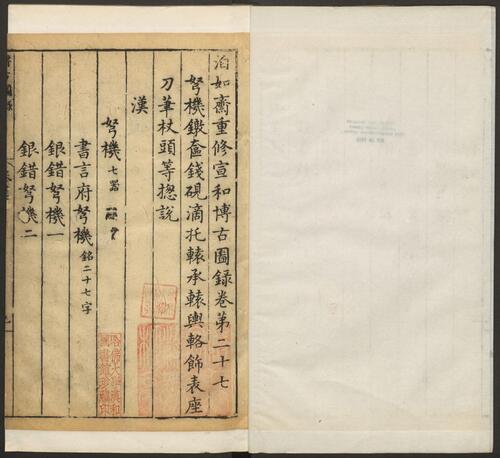 泊如齋重修宣和博古圖録卷第二十七
弩機鐓奩錢硯滴托轅承轅輿輅飾表座
刀筆杖頭等揔說
漢
弩機七器
書言府弩機銘二十七字
銀錯弩機一
銀錯弩機二
哈佛大學漢和圖書館珍藏印